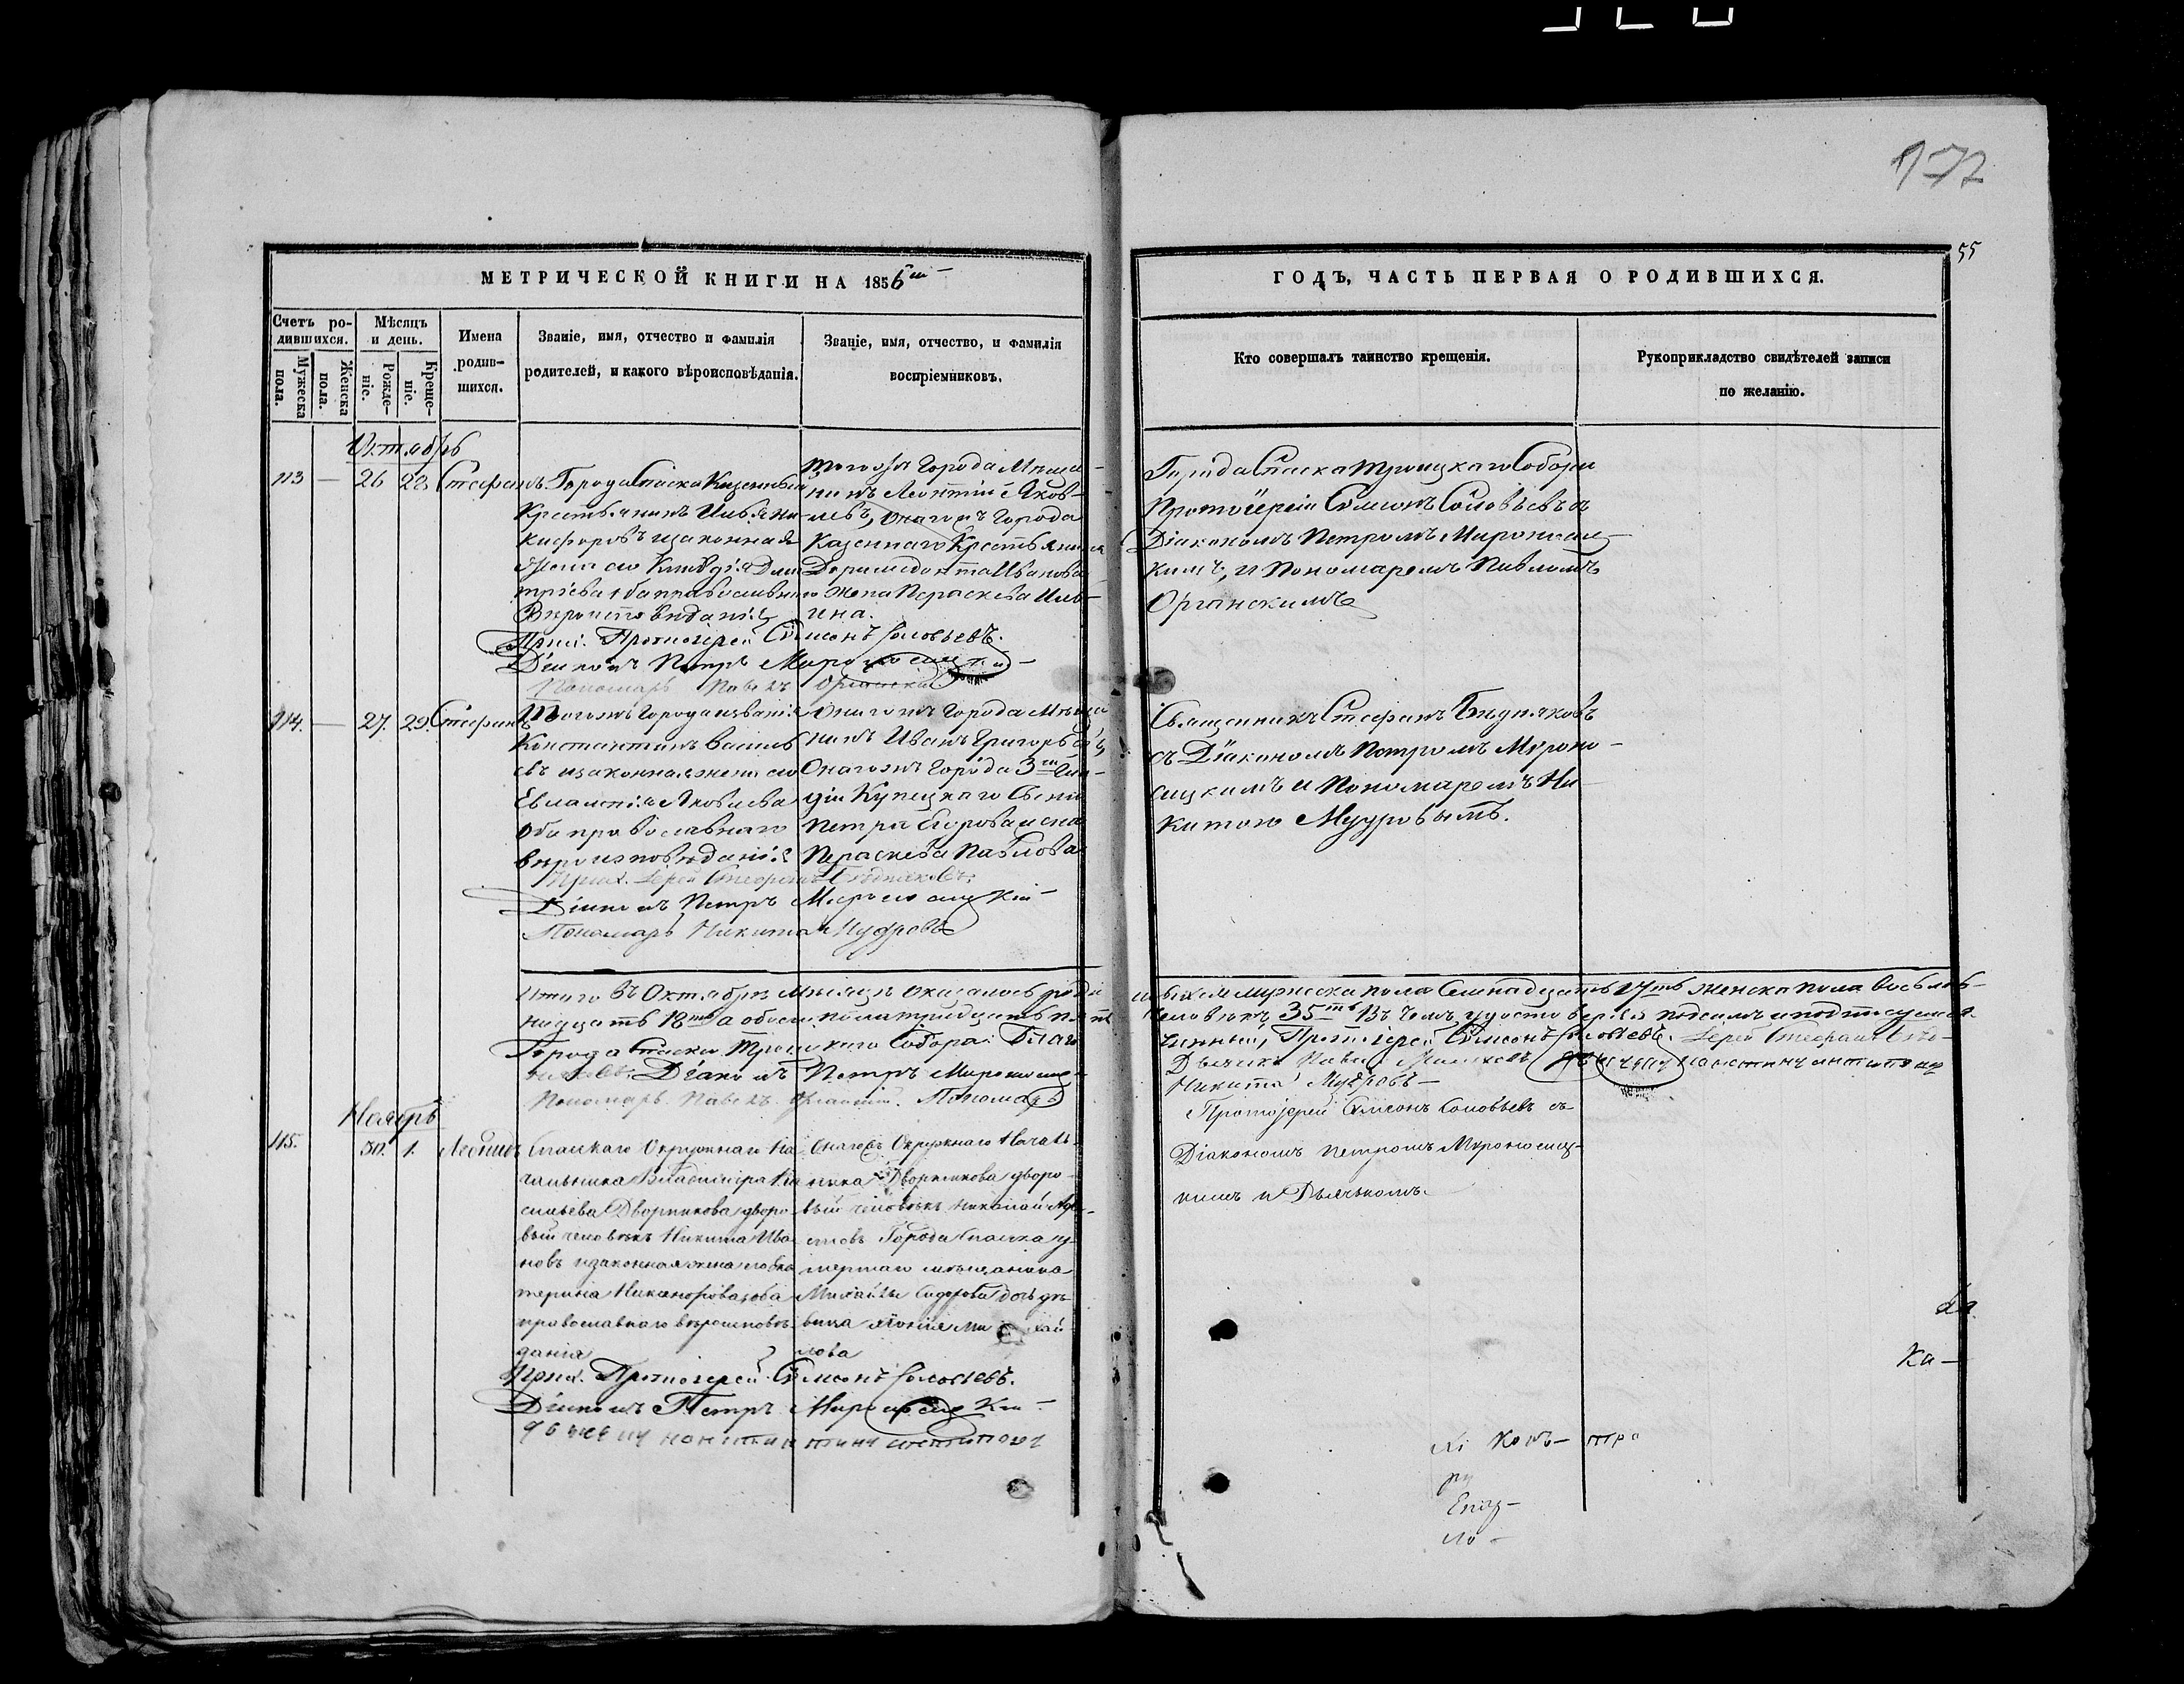 172
55
МЕТРИЧЕСКОЙ КНИГИ НА 1856й
ГОДЪ, ЧАСТЬ ПЕРВАЯ О РОДИВШИХСЯ.
Счетъ ро-
дившихся.
Мужеска
пола.
Женска
пола.
Мѣсяцъ
и день.
Рожде-
ніе.
Креще-
ніе.
Имена
родив-
шихся.
Званіе, имя, отчество и фамилія
родителей, и какого вѣроисповѣданія.
Званіе, имя, отчество, и фамилія
воспріемниковъ.
Кто совершалъ таинство крещенія.
Рукоприкладство свидѣтелей записи
по желанію.
Октябрь
113 — 26 28 Стефанъ
Города Спаска Казенный
Крестьянинъ Илья Ни-
кифоровъ изаконная
жена его Клавдія Дми
тріева оба православнаго
Вѣроисповѣданія
тогожъ Города Мѣща-
нинъ Леонтій Яков-
левъ, онагожъ Города
Казеннаго Крестьянина
Доримедонта Иванова
жена Пераскева Иль-
ина.
Города Спаска Троицкаго Собора
Протоіерей Симеонъ Соловьевъ съ
Діакономъ Петромъ Мироносиц-
кимъ, и Пономаремъ Павломъ
Органскимъ
Прих. Протоіерей Симеонъ Соловьевъ.
Діаконъ Петръ Мироносицкій
Пономарь Павелъ Органскій
114. — 27. 29. Стефанъ
Тогожъ Города
Константинъ Василь
евъ изаконная жена его
Евлампія Яковлева
оба православнаго
вѣроисповѣданія
Онагожъ Города Мѣща
нинъ Иванъ Григорьевъ,
Онагожъ Города 3й Гил-
діи Купецкаго Сына
Петра Егорова жена
Пераскева Павлова
Священникъ Стефанъ Бѣдняковъ
съ Діакономъ Петромъ Мироно-
сицкимъ и Пономаремъ Ни-
китою Мудровымъ.
Прих. Іерей Стефанъ Бѣдняковъ.
Діаконъ Петръ Мироносицкій
Пономарь Никита Мудровъ
Итого въ Октябрѣ Мѣсяцѣ оказалось роди
вшихся мужеска пола Семнадцать 17ть женска пола восьм-
надцать 18ть а обоего пола тридцать пять
человѣкъ 35ть Въ чемъ удостовѣряя подсимъ и подписуемся
Города Спаска Троицкаго Собора: Благо
чинный, Протоіерей Симеонъ Соловьевъ. Іерей Стефанъ Бѣд-
няковъ. Діаконъ Петръ Мироносиц-
Никита Мудровъ
Пономарь Павелъ Органскій. Пономарь
Ноябрь
115. 30. 1. Леонидъ
Спаскаго Окружнаго На-
чальника Владиміра Ва
сильева Дворникова дворо-
вый человѣкъ Никита Ива
новъ изаконная жена его Ека
терина Никанорова, оба
православнаго вѣроисповѣ-
данія
Онагожъ Окружнаго Началь-
ника Дворникова дворо-
вый человѣкъ Николай
Города Спаска у-
мершаго мѣщанина
Михайлы Сидорова дочь дѣ-
вица Михай
лова
Протоіерей Симеонъ Соловьевъ съ
Діакономъ Петромъ Мироносиц-
кимъ и Дьячкомъ.
Прих. Протоіерей Симеонъ Соловьевъ.
Діаконъ Петръ Мироносицкій
Ка-